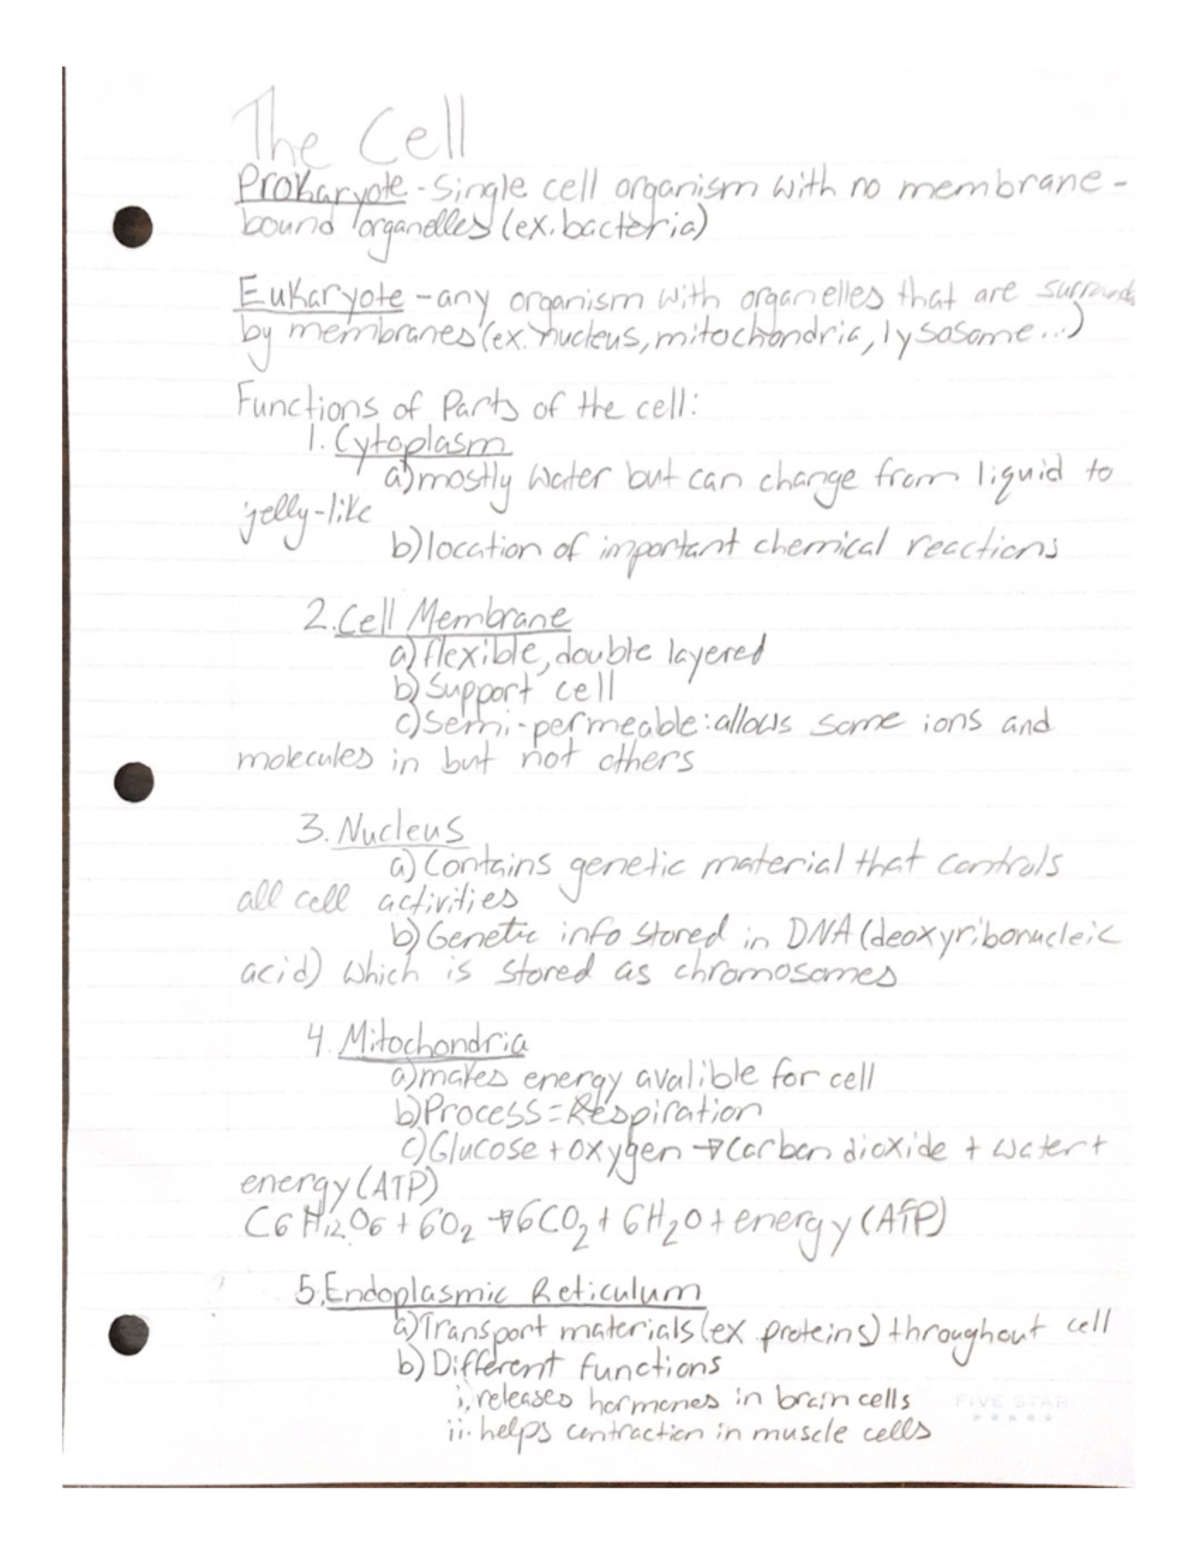 The Cell
Prokaryote - Single cell organism with no membrane -
bound organelles (ex. bacteria)
Eukaryote - any organism with organelles that are surrounds
by membranes (ex. nucleus, mitochondria, lysosome...)
Functions of Parts of the cell:
1. Cytoplasm
a) mostly water but can change from liquid to
jelly-like
b) location of important chemical reactions
2. Cell Membrane
a) flexible, double layered
b) Support cell
c) Semi-permeable: allows some ions and
molecules in but not others
3. Nucleus
a) Contains genetic material that controls
all cell activities
b) Genetic info stored in DNA (deoxyribonucleic
acid) which is stored as chromosomes
4. Mitochondria
a) makes energy avalible for cell
b) Process = Respiration
c) Glucose + oxygen → Carbon dioxide + water +
energy (ATP)
C6H12O6 + 6O2 → 6CO2 + 6H2O + energy (ATP)
5. Endoplasmic Reticulum
a) Transport materials (ex proteins) throughout cell
b) Different functions
i. releases hormones in brain cells
FIVE STAR
ii. helps contraction in muscle cells